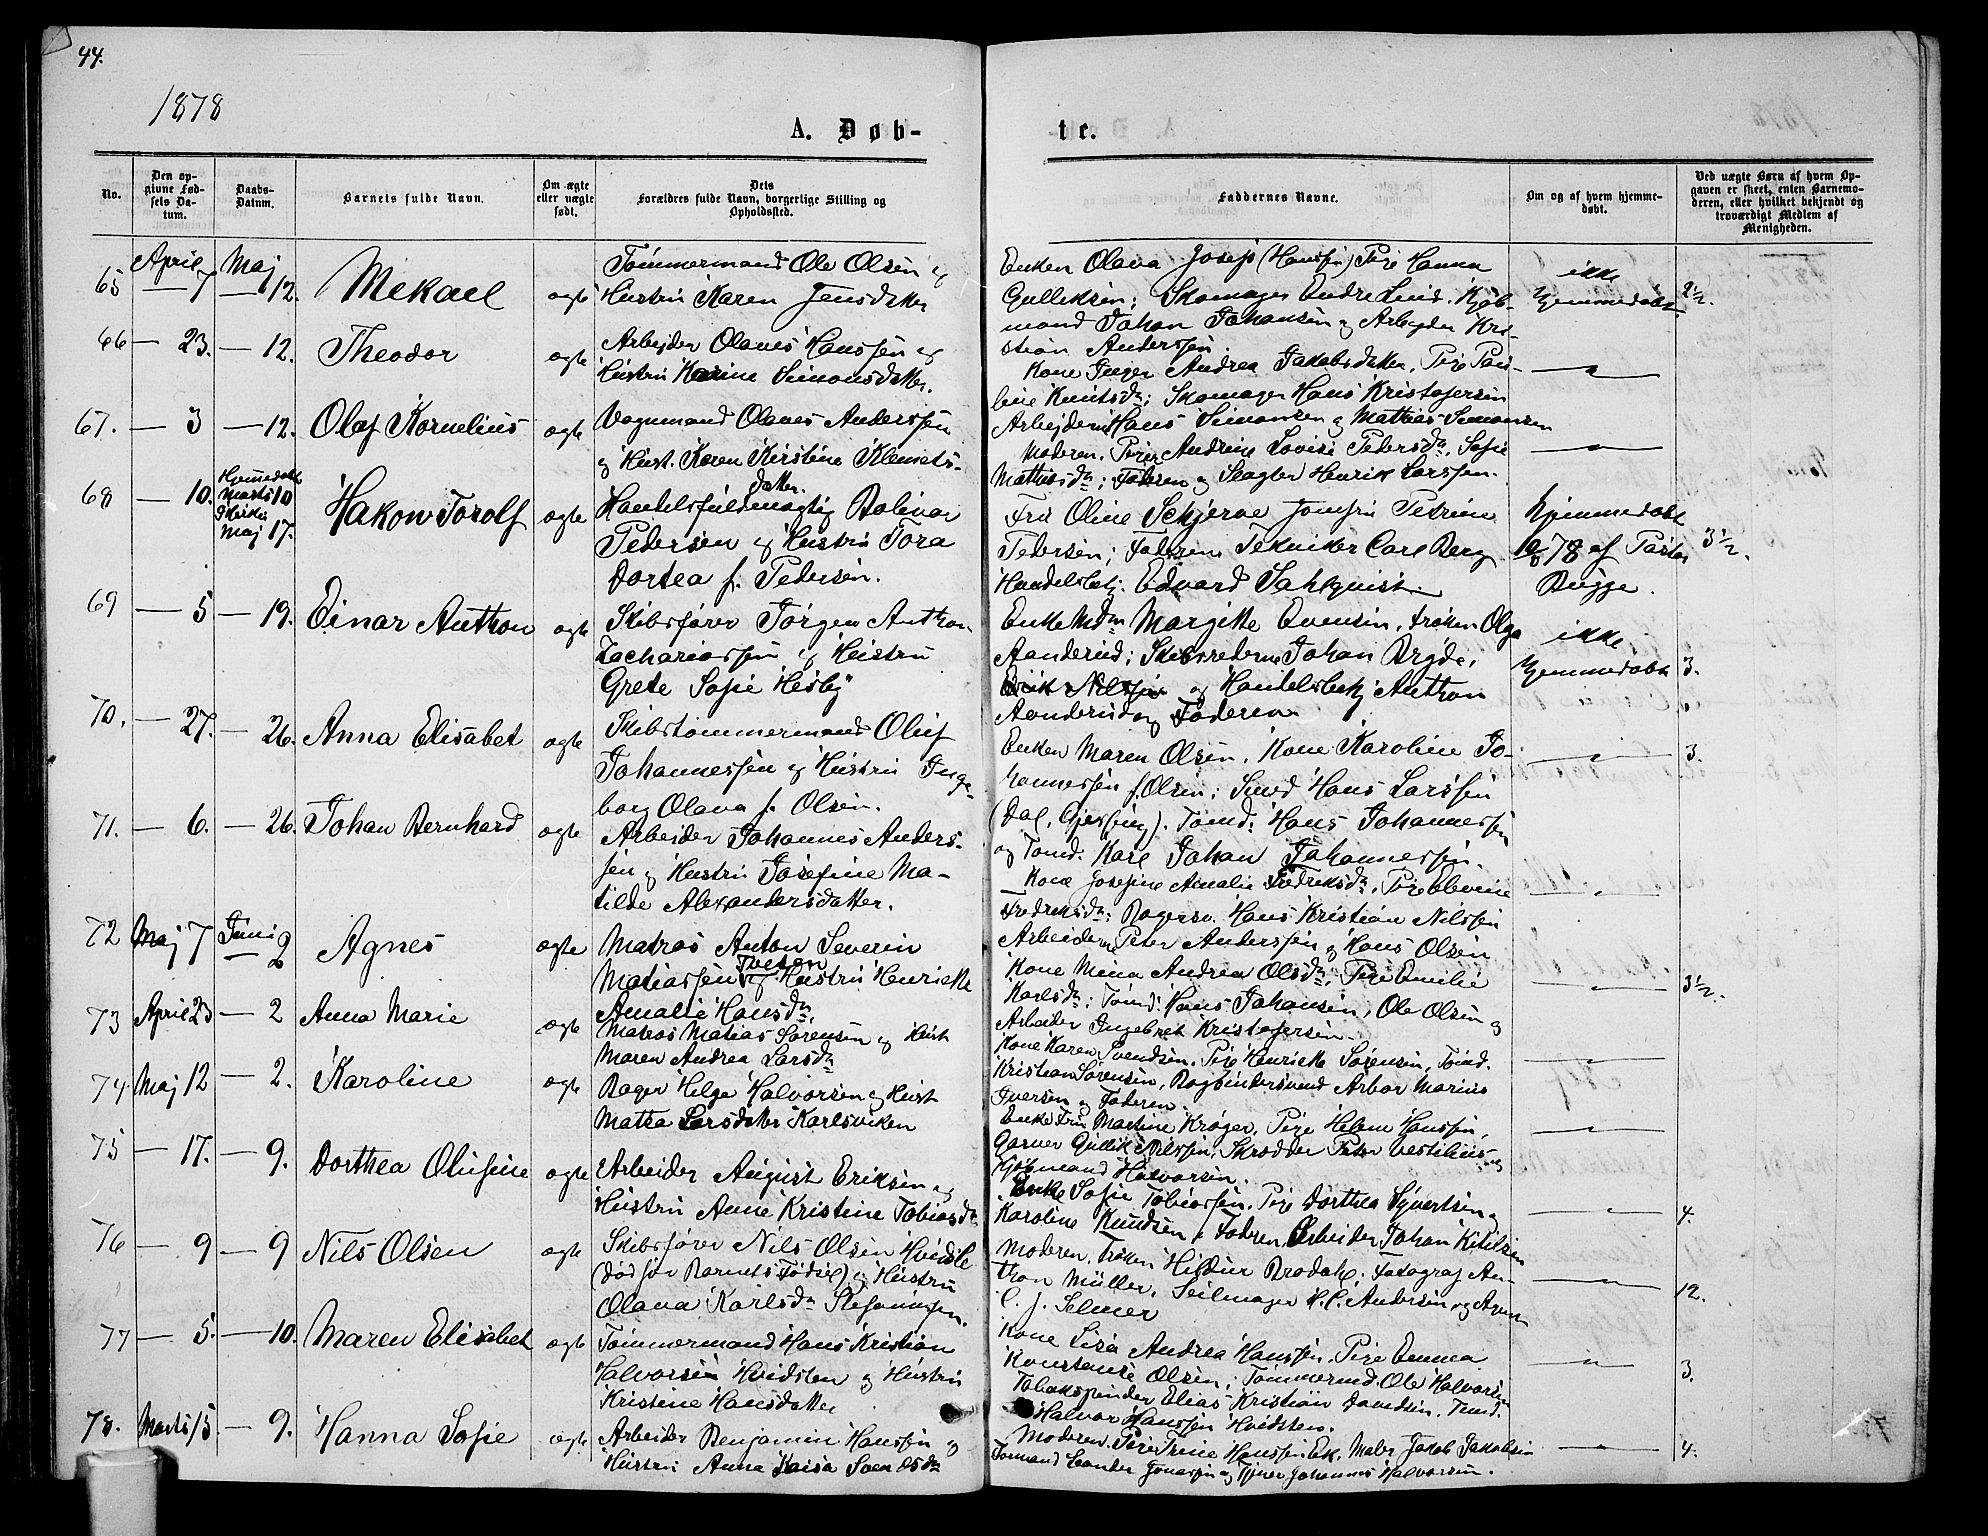 44.
1878
A. Døb-
te.
No.
Den op-
givne Fød-
sels Da-
tum.
Daabs-
Datum.
Barnets fulde Navn.
Om ægte
eller uægte
født.
Dets
Forældres fulde Navn, borgerlige Stilling og
Opholdssted.
Faddernes Navne.
Om og af hvem hjemme-
døbt.
Ved uægte Børn af hvem Op-
gaven er skeet, enten Barnemo-
deren, eller hvilket bekjendt og
troværdigt Medlem af
Menigheden.
65 April 7 Maj 12. Mekael ægte
Tømmermand Ole Olsen og
Hustru Karen Jensdatter
Enken Olava Josefs (Hanssen) Pige Hanna
Gulliksen; Skomager Andre Lind, Kjøb-
mand Johan Johansen og Arbejder Kri-
stian Anderssen.
ikke
hjemmedøbt
2½.
66 — 23. — 12. Theodor ægte
Arbejder Olaves Hanssen og
Hustru Karine Simonsdatter.
Kone Inger Andrea Jakobsdatter, Pige Pau-
line Knutsd; Skomager Hans Kristofersen
Arbejderne Hans Simonsen og Mathias Simonsen
— " —
67. — 3 — 12. Olaf Kornelius ægte
Vognmand Olaves Anderssen
og Hust. Karen Kirstine Klemets-
datter.
Moderen, Piger Andrine Lovise Pedersd., Sofie
Mathisd; Faderen og Slagter Henrik Larssen.
— " —
68 — 10. Hjemmedøbt
Marts 10
I Kirke
Maj 17. Hakon Torolf ægte
Handelsfuldmægtig Bolivar
Pedersen og Hustru Tora
Dortea f. Pedersen.
Fru Oline Schjerve Jomfru Petrine
Pedersen; Faderen, Tekniker Carl Berg
Handelsbetj. Edvard Sahlquist
hjemmedøbt
78 af Pastor
Bugge.
3½.
69 — 5 — 19. Einar Anthon ægte
Skibsfører Jørgen Anthon
Zachariassen og Hustru
Grete Sofie Hesby
Enke Mdm Margitte Evensen, Frøken Olga
Aanderud; Skibsrederne Johan Bryde,
Erik Nilssen og Handelsbetj. Anthon
Aanderud og Faderen
ikke
hjemmedøbt
3.
70. — 27. — 26. Anna Elisabet ægte
Skibstømmermand Oluf
Johannessen og Hustru Inge-
borg Olava f. Olsen.
Enken Maren Olsen, Kone Karoline Jo-
hannessen f. Olsen; Smed Hans Larssen
(Dal, Gjessing). Tømd. Hans Johannessen
og Tømd. Karl Johan Johannessen.
— " —
3.
71. — 6. — 26. Johan Bernhard ægte
Arbeider Johannes Anders-
sen og Hustru Josefine Ma-
tilde Alexandersdatter.
Kone Josefine Amalie Fredriksd, Pige Elevine
Fredriksd; Bagersv. Hans Kristian Nilssen
Arbeiderne Peter Anderssen og Hans Olsen
— " —
72 Maj 7 Juni 2 Agnes ægte
Matros Anton Severin
Matiassen Tveten og Hustru Henriette
Amalie Hansd.
Kone Mina Andrea Olsd; Pige Emilie
Karlsd; Tømd. Hans Johansen, Ole Olsen og
Arbeider Ingebret Kristofersen.
— " —
3½.
73 April 23 — 2 Anna Marie ægte
Matros Matias Sørensen og Hust
Maren Andrea Larsd
Kone Karen Svendsen, Pige Henriette Sørensen, Tømd.
Kristian Sørensen, Bogbindersvend Arbor Marius
Iversen og Faderen.
— " —
74 Maj 12 — 2. Karoline ægte
Bager Helge Halvorsen og Hust
Matea Larsdatter Karlsviken
Enke Fru Martine Krøger, Pige Helene Hanssen,
Garver Gullik Nilssen, Skrædder Peter Vestilius og
Kjøbmand Halvorsen.
— " —
75 — 17. — 9. Dorthea Olufine ægte
Arbeider August Eriksen og
Hustru Anne Kristine Tobiasd.
Enke Sofie Tobiassen, Pige Dorthea Syvertsen og
Karoline Knudsen, Faderen, Arbeider Johan Kitilsen
— " —
4.
76 — 9 — 9 Nils Olsen ægte
Skibsfører Nils Olsen Hvidste
(død før Barnets Fødsel) og Hustru
Olava Karlsd Stefanussen.
Moderen, Frøken Hildur Brodahl; Fotograf An-
thon Müller, Seilmager H. C. Andersen og Agent
C. J. Selmer
— " —
12.
77 — 5. — 10. Maren Elisabet ægte
Tømmermand Hans Kristian
Halvorsen Hvidsten og Hustru
Kristine Hansdatter
Kone Lisa Andrea Hanssen, Pige Emma
Konstanse Olsen; Tømmermd. Ole Halvorsen
Tobakspinder Elias Kristian Davidsen, Tømd.
Halvor Hanssen Hvidsten.
— " —
3.
78. Marts 15 — 9. Hanna Sofie ægte
Arbeider Benjamin Hanssen og
Hustru Anna Kaisa Svendsd
Moderen, Pige Trine Hanssen Eek, Maler Jakob Jakobsen
Tømmand Leander Jonassen og Tjener Johannes Halvorsen.
— " —
4.